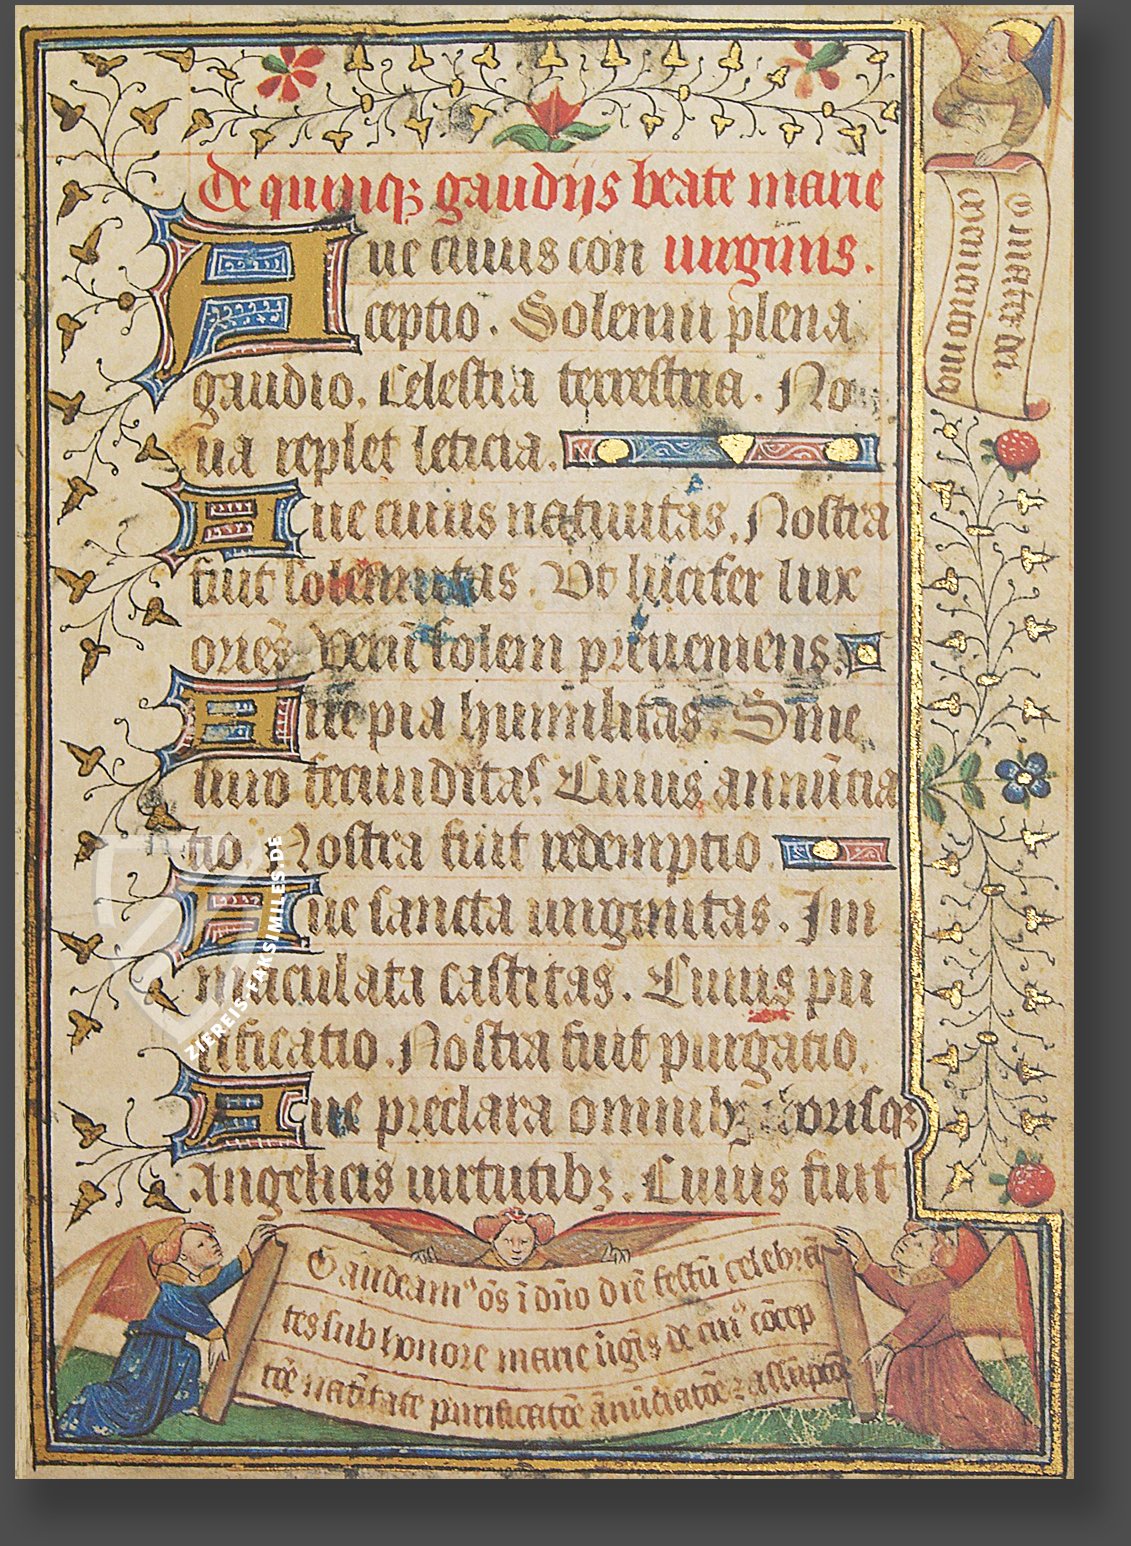 De quinqꝫ gaudijs beate marie
Aue cuius con uirginis.
ceptio. Solenni plena
gaudio. Celestia terrestria. No
ua replet leticia.
Aue cuius natiuitas. Nostra
fuit solemnitas. Vt lucifer lux
oriēs verū solem preueniens.
Aue pia humilitas. Sine
uiro fecunditas. Cuius annūcia
tio. Nostra fuit redemptio
Aue sancta uirginitas. Im
maculata castitas. Cuius pu
rificatio. Nostra fuit purgatio.
Aue preclara omnibꝫ
Angelicis uirtutibꝫ. Cuius fuit
O mater dei
memento mei
Gaudeamꝰ oēs ī dño diē festū celebrā
tes sub honore marie ūgīs de cuiꝰ cōcep
tōe natītate purificatōe ānūciatōe ⁊ assūptōe
ZIEREIS-FAKSIMILES.DE